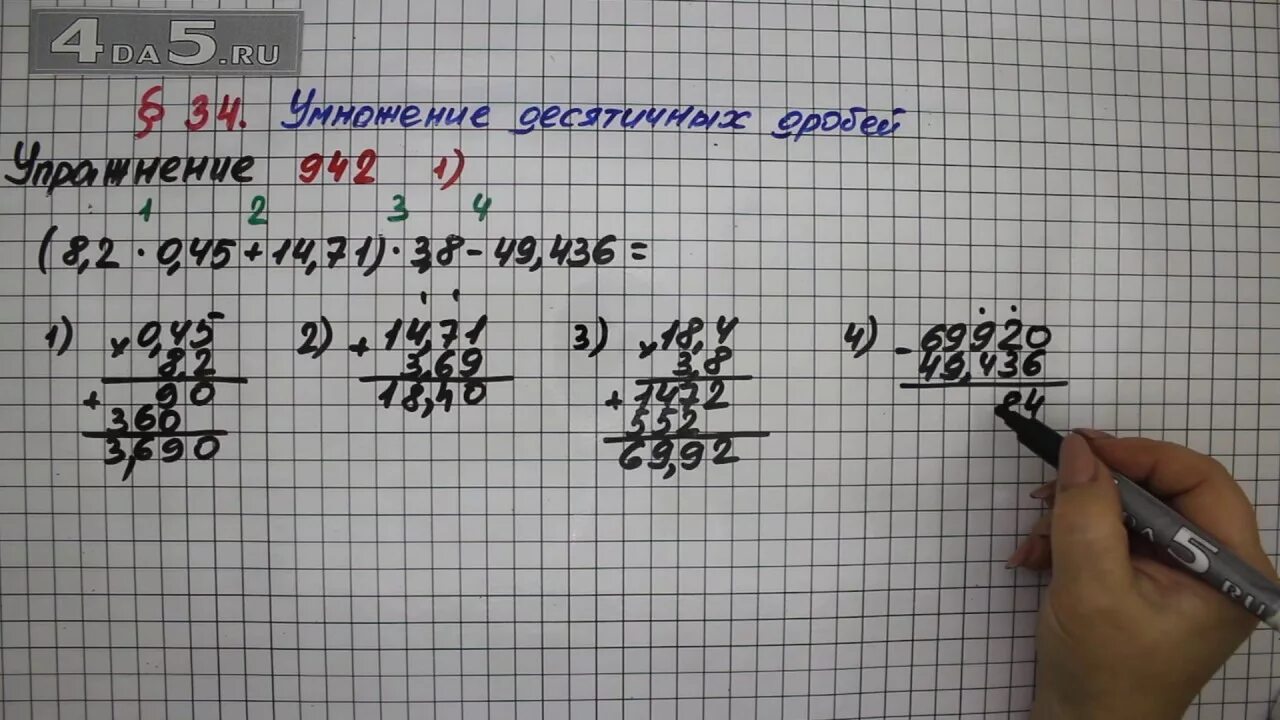 4DA5.RU
§ 34. Умножение десятичных дробей
Упражнение 942 1)
1 2 3 4
(8,2 · 0,45 + 14,71) · 3,8 - 49,436 =
1) 2) 3) 4)
× 0,45
8,2
+ 90
360
3,690
+ 14,71
3,69
18,40
× 18,4
3,8
+ 1472
552
69,92
- 69920
49,436
84
4DA5.RU